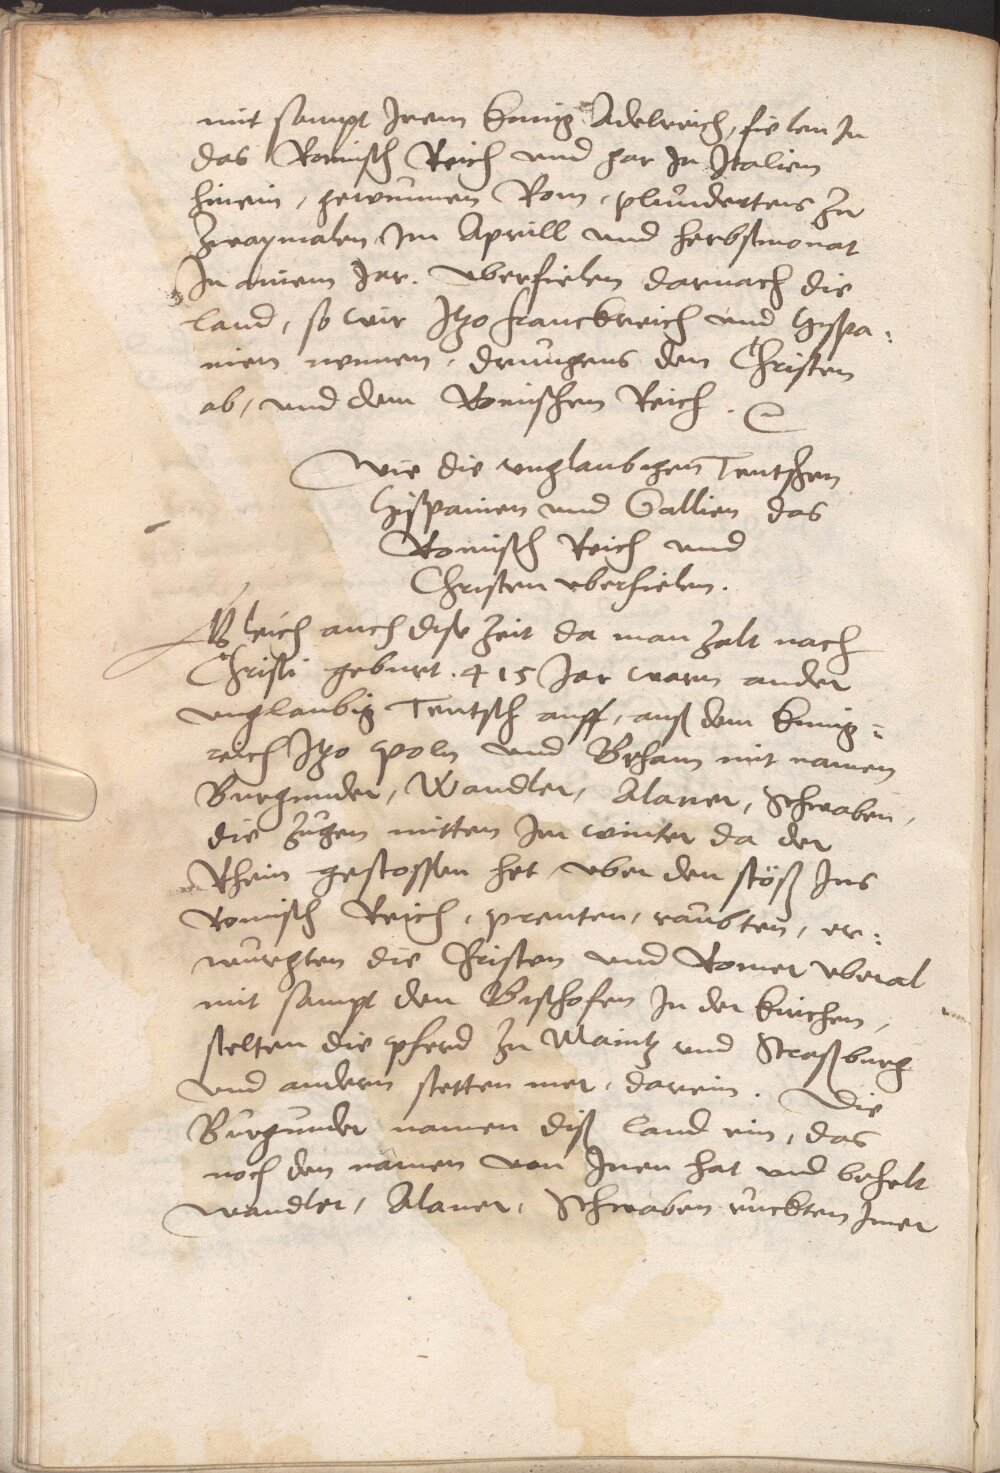 mit sampt Irem kunig Adelreich, fielen In
das Romisch Reich und gar In Italien
hinein, gewunnen Rom, plunderttens zu
Zwaymalen Im Aprill und herbstmonat
In ainem Jar. uberfielen darnach die
land, so wir Itzo franckreich und Hispa:
nien nennen, drungens den Christen
ab, und dem Romischen Reich.
Wie die unglaubigen Teutschen
Hispanien und Gallien das
Romisch Reich und
Christen uberfielen.
Gleich auch dise Zeit da man Zalt nach
Christi geburt. 415 Jar warn ander
unglaubig Teutsch auff, auß dem kunig:
reich Itzo Poln und Beham mit namen
Burgunder, Wandler, Alaner, Schwaben,
die Zugen mitten Im winter da der
Rhein gestossen het uber den stöß Ins
Romisch Reich, prenten, raubten, er:
wurgten die Christen und Romer uberal
mit sampt den Bischofen In der kirchen,
stelten die pferd Zu Maintz und Straßburg
und andern stetten mer, darein. Die
Burgunder namen diß land ein, das
noch den namen von Inen hat und behelt
Wandler, Alaner, Schwaben ruckten Imer